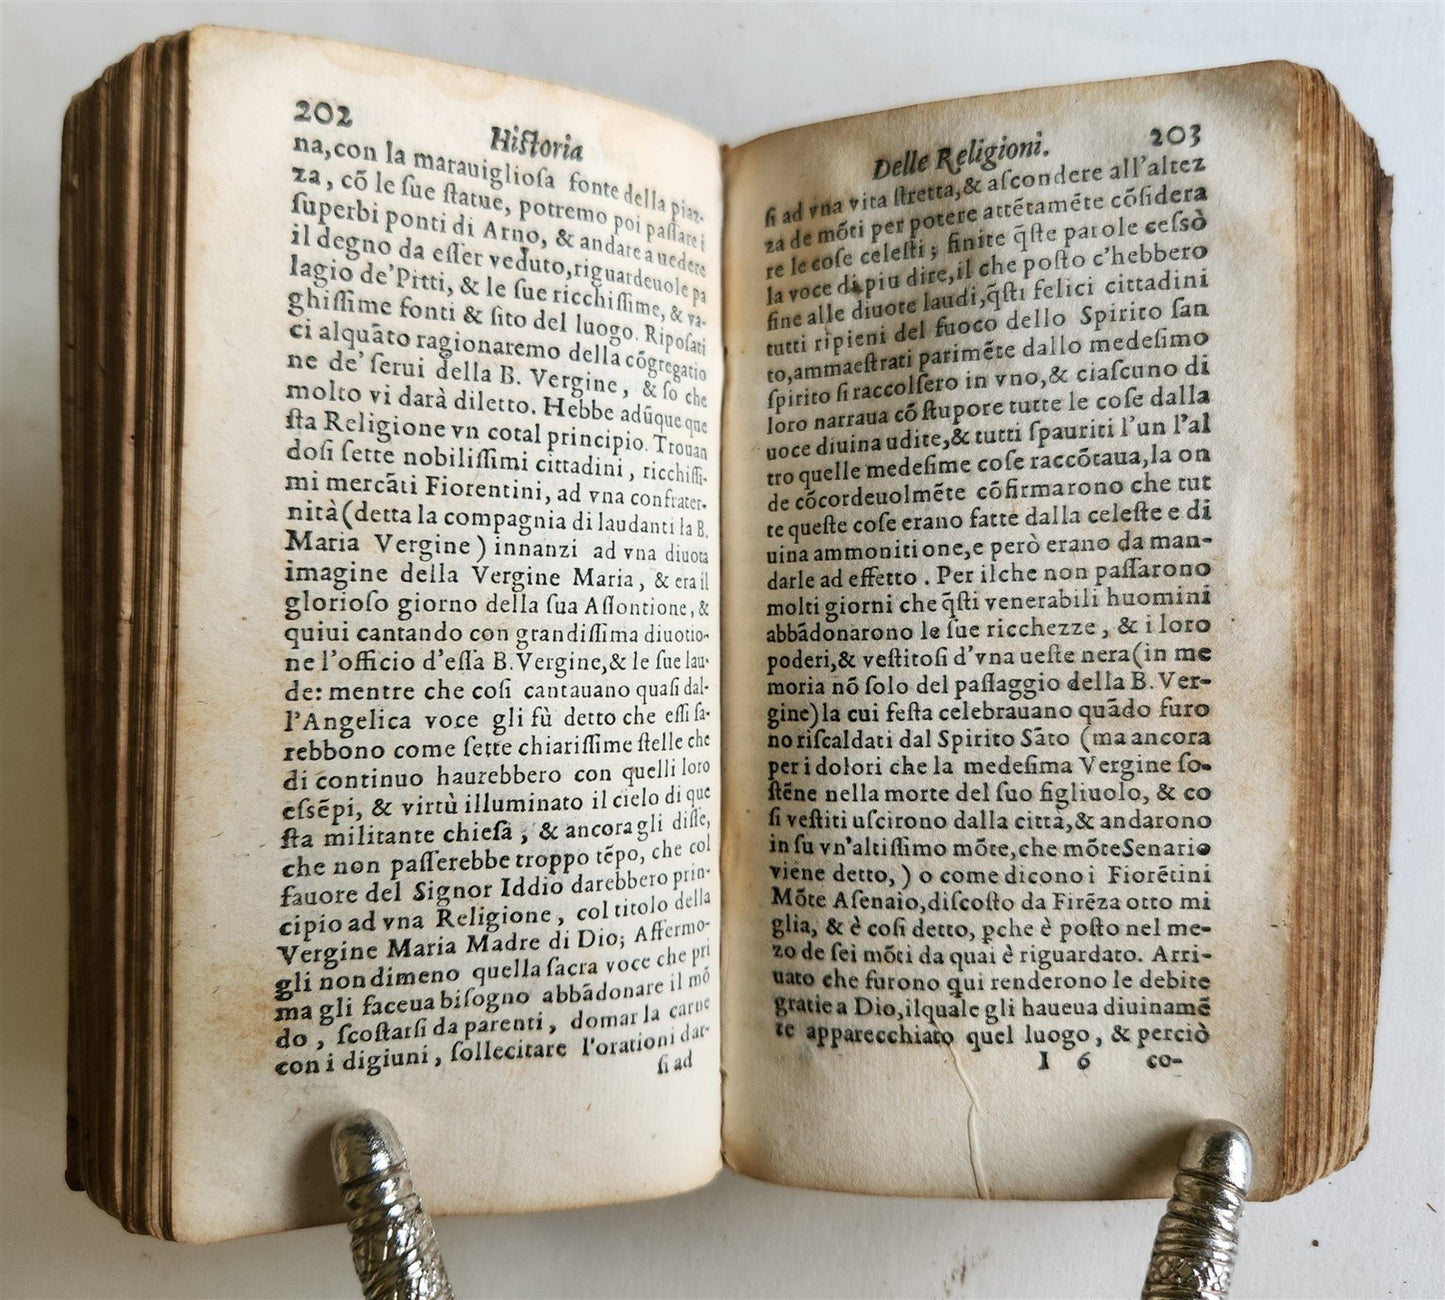 202
Hiſtoria
na, con la marauiglioſa fonte della piaz-
za, cõ le ſue ſtatue, potremo poi paſſare i
ſuperbi ponti di Arno, & andare a uedere
il degno da eſſer veduto, riguardeuole pa
lagio de'Pitti, & le ſue ricchiſſime, & va-
ghiſſime fonti & ſito del luogo. Ripoſati
ci alquãto ragionaremo della cõgregatio
ne de' ſerui della B. Vergine, & ſo che
molto vi darà diletto. Hebbe adũque que
ſta Religione vn cotal principio. Trouan
doſi ſette nobiliſſimi cittadini, ricchiſſi-
mi mercãti Fiorentini, ad vna confrater-
nità (detta la compagnia di laudanti la B.
Maria Vergine) innanzi ad vna diuota
imagine della Vergine Maria, & era il
glorioſo giorno della ſua Aſſontione, &
quiui cantando con grandiſſima diuotio-
ne l'officio d'eſſa B. Vergine, & le ſue lau-
de: mentre che coſi cantauano quaſi dal-
l'Angelica voce gli fù detto che eſſi ſa-
rebbono come ſette chiariſſime ſtelle che
di continuo haurebbero con quelli loro
eſsẽpi, & virtù illuminato il cielo di que
ſta militante chieſa, & ancora gli diſſe,
che non paſſerebbe troppo tẽpo, che col
fauore del Signor Iddio darebbero prin-
cipio ad vna Religione, col titolo della
Vergine Maria Madre di Dio; Affermo-
gli nondimeno quella ſacra voce che pri
ma gli faceua biſogno abbãdonare il mõ
do, ſcoſtarſi da parenti, domar la carne
con i digiuni, ſollecitare l'orationi dar-
ſi ad
Delle Religioni.
203
ſi ad vna vita ſtretta, & aſcondere all'altez
za de mõti per potere attẽtamẽte cõſidera
re le coſe celeſti; finite q̃ſte parole ceſsò
la voce di piu dire, il che poſto c'hebbero
fine alle diuote laudi, q̃ſti felici cittadini
tutti ripieni del fuoco dello Spirito ſan
to, ammaeſtrati parimẽte dallo medeſimo
ſpirito ſi raccolſero in vno, & ciaſcuno di
loro narraua cõ ſtupore tutte le coſe dalla
uoce diuina udite, & tutti ſpauriti l'un l'al
tro quelle medeſime coſe raccõtaua, la on
de cõcordeuolmẽte cõfirmarono che tut
te queſte coſe erano fatte dalla celeſte e di
uina ammonitione, e però erano da man-
darle ad effetto. Per ilche non paſſarono
molti giorni che q̃ſti venerabili huomini
abbãdonarono le ſue ricchezze, & i loro
poderi, & veſtitoſi d'vna ueſte nera (in me
moria nõ ſolo del paſſaggio della B. Ver-
gine) la cui feſta celebrauano quãdo furo
no riſcaldati dal Spirito Sãto (ma ancora
per i dolori che la medeſima Vergine ſo-
ſtẽne nella morte del ſuo figliuolo, & co
ſi veſtiti uſcirono dalla città, & andarono
in ſu vn'altiſſimo mõte, che mõte Senario
viene detto,) o come dicono i Fiorẽtini
Mõte Aſenaio, diſcoſto da Firẽza otto mi
glia, & è coſi detto, ꝑche è poſto nel me-
zo de ſei mõti da quai è riguardato. Arri-
uato che furono qui renderono le debite
gratie a Dio, ilquale gli haueua diuinamẽ
te apparecchiato quel luogo, & perciò
I 6 co-